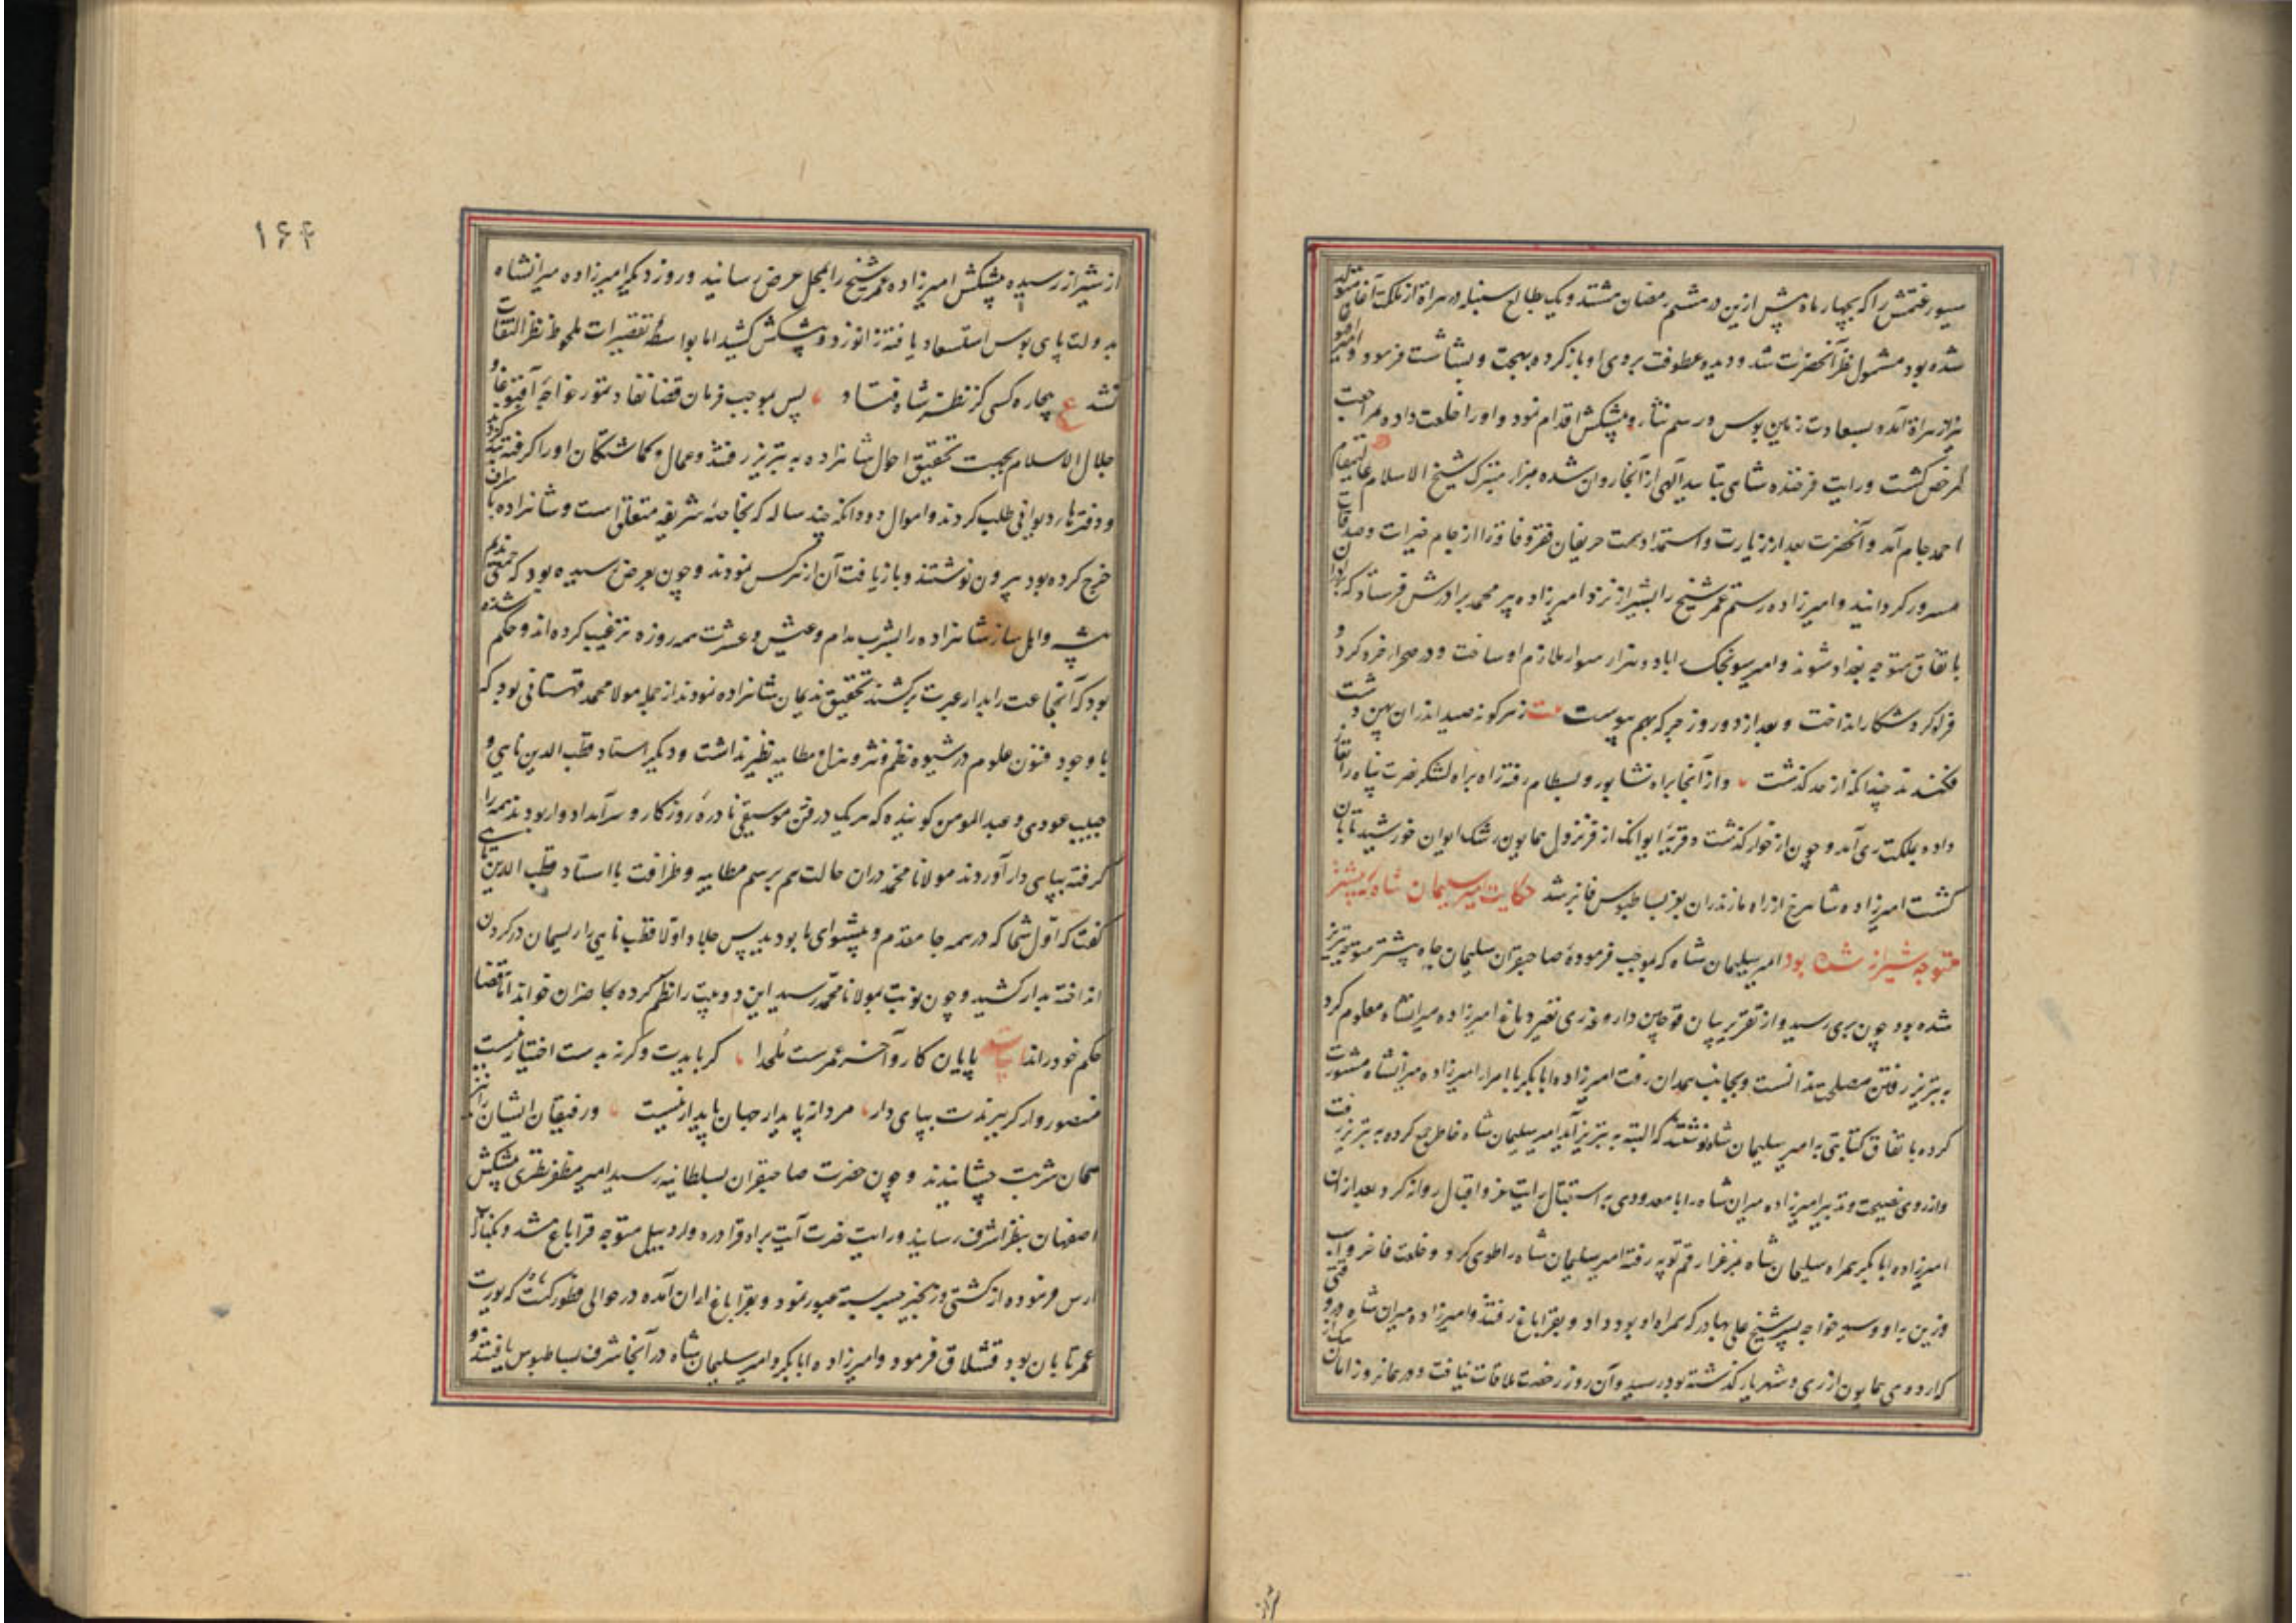 سیورغتمش را که بچهار ماه پیش ازین در ششم رمضان هشتصد و یک بطالع سنبله در هراة از ملکت آغا متولد
شده بود مشمول نظر آنحضرت شد و دیده عطوفت بروی او باز کرده بهجت و بشاشت فرمود و امیر
نیز از هراة آمده بسعادت زمین بوس و رسم نثار و پیشکش اقدام نمود و او را خلعت داده مراجعت
مرخص گشت و رایت فرخنده شاهی بتایید الهی از آنجا روان شده بمزار متبرک شیخ الاسلام عالیمقام
احمد جام آمد و آنحضرت بعد از زیارت و استمداد همت حریفان فقر و فاقه را از جام خیرات و صدقات
مسرور گردانید و امیرزاده رستم عمر شیخ را بشیراز نزد امیرزاده پیر محمد برادرش فرستاد که
باتفاق متوجه بغداد شوند و امیر سونجک را با دو هزار سوار ملازم او ساخت و در صحرا خره کرد و
فراه کرد شکار انداخت و بعد از دو روز جرکه بهم پیوست بیت زهر گونه صید اندران پهن دشت
فکندند چندانکه از حد گذشت و از آنجا براه نشابور و بسطام رفته زاه براه لشکر نصرت پناه را
داده بملکت ری آمد و چون از خوار گذشت و قریه ایوانک از فر نزول همایون رشک ایوان خورشید تابان
گشت امیرزاده شاهرخ از راه مازندران بعز بساط بوس فایز شد حکایت امیر سلیمان شاه که پیشتر
متوجه شیراز شده بود امیر سلیمان شاه که بموجب فرموده صاحبقران سلیمان جاه پیشتر متوجه تبریز
شده بود چون بری رسید و از تقریر بیان قوجین داروغه ری تغیر دماغ امیرزاده میرانشاه معلوم کرد
به تبریز رفتن مصلحت ندانست و بجانب همدان رفت امیرزاده ابابکر با امراء امیرزاده میرانشاه مشورت
کرده باتفاق کتابتی به امیر سلیمان شاه نوشتند که البته به تبریز آید امیر سلیمان شاه خاطر جمع کرده به تبریز رفت
و از روی نصیحت و تدبیر امیرزاده میران شاه را با معدودی به استقبال رایت عز و اقبال روانه کرد و بعد از ان
امیرزاده ابابکر همراه سلیمان شاه بمرغزار قم توپه رفته امیر سلیمان شاه را طوی کرد و خلعت فاخر و اسب
و زین به او و سید خواجه پسر شیخ علی بهادر که همراه او بود داد و بقراباغ رفتند و امیرزاده میران شاه
که اردوی همایون از ری و شهریار گذشته بود رسید و آن روز رخصت ملاقات نیافت و در همانروز
۱۶۴
از شیراز رسیده پیشکش امیرزاده عمر شیخ را بمحل عرض رسانید و روز دیگر امیرزاده میرانشاه
بدولت پای بوس استسعاد یافته زانو زد و پیشکش کشید اما بواسطه تقصیرات ملحوظ نظر التفات
نشد ع بیچاره کسی کز نظر شاه فتاد پس بموجب فرمان قضا نفاد تمور خواجه آقبوغا و
جلال الاسلام بجهت تحقیق احوال شاهزاده به تبریز رفتند و عمال و گماشتگان او را گرفته بند کردند
و دفترهاء دیوانی طلب کردند و اموال دودانکه چند ساله که بخاصه شریفه متعلق است و شاهزاده باسراف
خرج کرده بود بیرون نوشتند و بازیافت آن از هر کس نمودند و چون بعرض رسیده بود که جمعی ندیم
پیشه و اهل ساز شاهزاده را بشرب مدام و عیش و عشرت همه روزه ترغیب کرده اند و حکم شده
بود که آنجماعت را بدار عبرت برکشند تحقیق ندیمان شاهزاده نمودند از جمله مولانا محمد قهستانی بود که
با وجود فنون علوم در شیوه نظم و نثر و هزل و مطایبه نظیر نداشت و دیگر استاد قطب الدین نایی و
حبیب عودی و عبد المومن گوینده که هر یک در فن موسیقی نادره روزگار و سرآمد ادوار بودند همه را
گرفته بپای دار آوردند مولانا محمد در ان حالت هم برسم مطایبه و ظرافت با استاد قطب الدین نایی
گفت که اول شما که در همه جا مقدم و پیشوای ما بودید پس جلاد اولا قطب نایی را ریسمان در گردن
انداخته بدار کشید و چون نوبت بمولانا محمد رسید این دو بیت را نظم کرده بحاضران خواند اما قضا
حکم خود راند بیت پایان کار و آخر عمرست ملحدا گر بایدت وگرنه بدست اختیار نیست
منصور وار گر ببرندت بپای دار مردانه پای دار جهان پایدار نیست و رفیقان ایشان را نیز
همان شربت چشانیدند و چون حضرت صاحبقران بسلطانیه رسید امیر مظفر نطنزی پیشکش
اصفهان بنظر اشرف رسانید و رایت نصرت آیت براه قرادره و اردبیل متوجه قراباغ شد و بکنار
ارس فرموده از کشتی و زنجیر جسر بسته عبور نمود و بقراباغ اران آمده در حوالی قطور کنت که یورت
عمر تابان بود قشلاق فرمود و امیرزاده ابابکر و امیر سلیمان شاه در آنجا شرف بساط بوس یافتند و